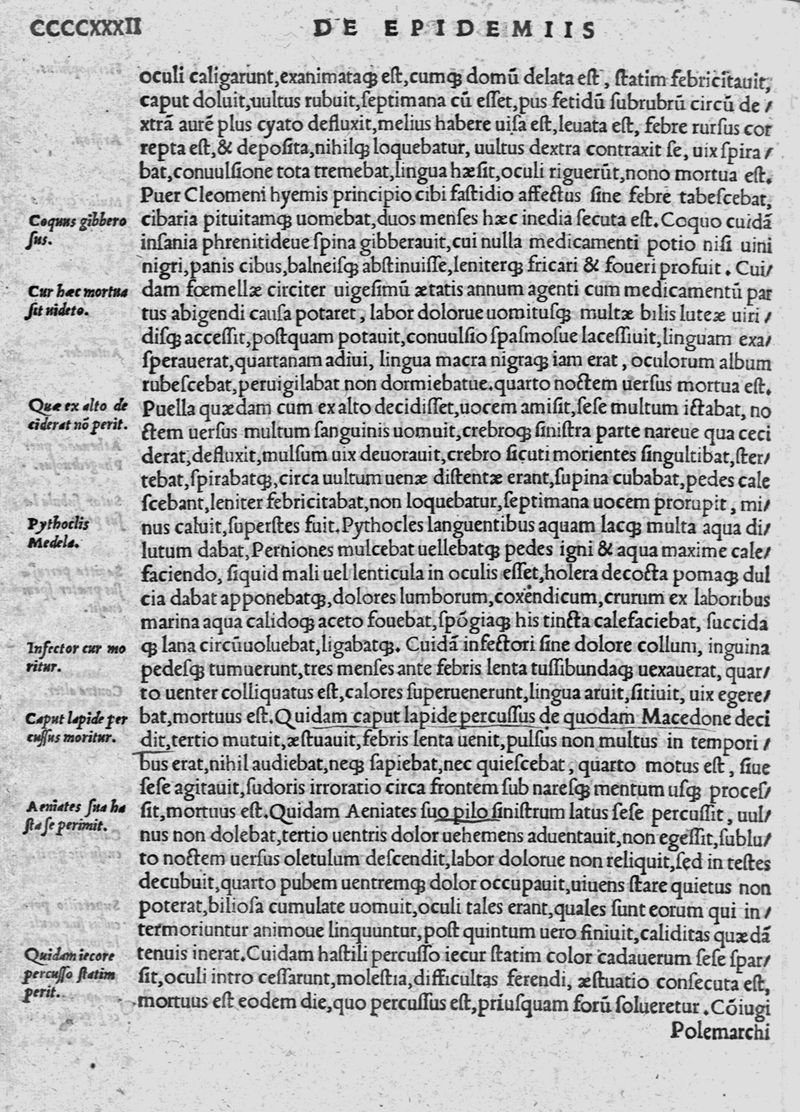 CCCCXXXII
DE EPIDEMIIS
oculi caligarunt,exanimataq́; eſt,cumq́; domũ delata eſt, ſtatim febricitauit,
caput doluit,uultus rubuit,ſeptimana cũ eſſet,pus fetidũ ſubrubrũ circũ de /
xtrã aurẽ plus cyato defluxit,melius habere uiſa eſt,leuata eſt, febre rurſus cor
repta eſt,& depoſita,nihilq́; loquebatur, uultus dextra contraxit ſe, uix ſpira /
bat,conuulſione tota tremebat,lingua hæſit,oculi riguerũt,nono mortua eſt.
Puer Cleomeni hyemis principio cibi faſtidio affectus ſine febre tabeſcebat,
Coquus gibbero
ſus.
cibaria pituitamq́; uomebat,duos menſes hæc inedia ſecuta eſt. Coquo cuidã
inſania phrenitideue ſpina gibberauit,cui nulla medicamenti potio niſi uini
nigri,panis cibus,balneiſq́; abſtinuiſſe,leniterq́; fricari & foueri profuit. Cui/
Cur hæc mortua
ſit uideto.
dam fœmellæ circiter uigeſimũ ætatis annum agenti cum medicamentũ par
tus abigendi cauſa potaret, labor dolorue uomituſq́; multæ bilis luteæ uiri /
diſq́; acceſſit,poſtquam potauit,conuulſio ſpaſmoſue laceſſiuit,linguam exa/
ſperauerat,quartanam adiui, lingua macra nigraq́; iam erat, oculorum album
rubeſcebat,peruigilabat non dormiebatue.quarto noctem uerſus mortua eſt.
Quæ ex alto de
ciderat nõ perit.
Puella quædam cum ex alto decidiſſet,uocem amiſit,ſeſe multum iactabat, no
ctem uerſus multum ſanguinis uomuit,crebroq́; ſiniſtra parte nareue qua ceci
derat,defluxit,mulſum uix deuorauit,crebro ſicuti morientes ſingultibat,ſter/
tebat,ſpirabatq́;,circa uultum uenæ diſtentæ erant,ſupina cubabat,pedes cale
ſcebant,leniter febricitabat,non loquebatur,ſeptimana uocem prorupit, mi/
Pythoclis
Medela.
nus caluit,ſuperſtes fuit.Pythocles languentibus aquam lacq́; multa aqua di/
lutum dabat, Perniones mulcebat uellebatq́; pedes igni & aqua maxime cale/
faciendo, ſiquid mali uel lenticula in oculis eſſet,holera decocta pomaq́; dul
cia dabat apponebatq́;,dolores lumborum,coxendicum,crurum ex laboribus
marina aqua calidoq́; aceto fouebat,ſpõgiaq́; his tincta calefaciebat, ſuccida
Infector cur mo
ritur.
q́; lana circũuoluebat,ligabatq́;. Cuidã infectori ſine dolore collum, inguina
pedeſq́; tumuerunt,tres menſes ante febris lenta tuſſibundaq́; uexauerat, quar/
to uenter colliquatus eſt,calores ſuperuenerunt,lingua aruit,ſitiuit, uix egere/
Caput lapide per
cuſſus moritur.
bat,mortuus eſt.Quidam caput lapide percuſſus de quodam Macedone deci
dit,tertio mutuit,æſtuauit,febris lenta uenit,pulſus non multus in tempori /
bus erat,nihil audiebat,neq́; ſapiebat,nec quieſcebat, quarto motus eſt, ſiue
ſeſe agitauit,ſudoris irroratio circa frontem ſub nareſq́; mentum uſq́; proceſ/
Aeniates ſua ha
ſta ſe perimit.
ſit,mortuus eſt.Quidam Aeniates ſuo pilo ſiniſtrum latus ſeſe percuſſit, uul/
nus non dolebat,tertio uentris dolor uehemens aduentauit,non egeſſit,ſublu/
to noctem uerſus oletulum deſcendit,labor dolorue non reliquit,ſed in teſtes
decubuit,quarto pubem uentremq́; dolor occupauit,uiuens ſtare quietus non
poterat,bilioſa cumulate uomuit,oculi tales erant,quales ſunt eorum qui in/
termoriuntur animoue linquuntur,poſt quintum uero finiuit,caliditas quædã
Quidam iecore
percuſſo ſtatim
perit.
tenuis inerat.Cuidam haſtili percuſſo iecur ſtatim color cadauerum ſeſe ſpar/
ſit,oculi intro ceſſarunt,moleſtia,difficultas ferendi, æſtuatio conſecuta eſt,
mortuus eſt eodem die,quo percuſſus eſt,priuſquam forũ ſolueretur. Cõiugi
Polemarchi